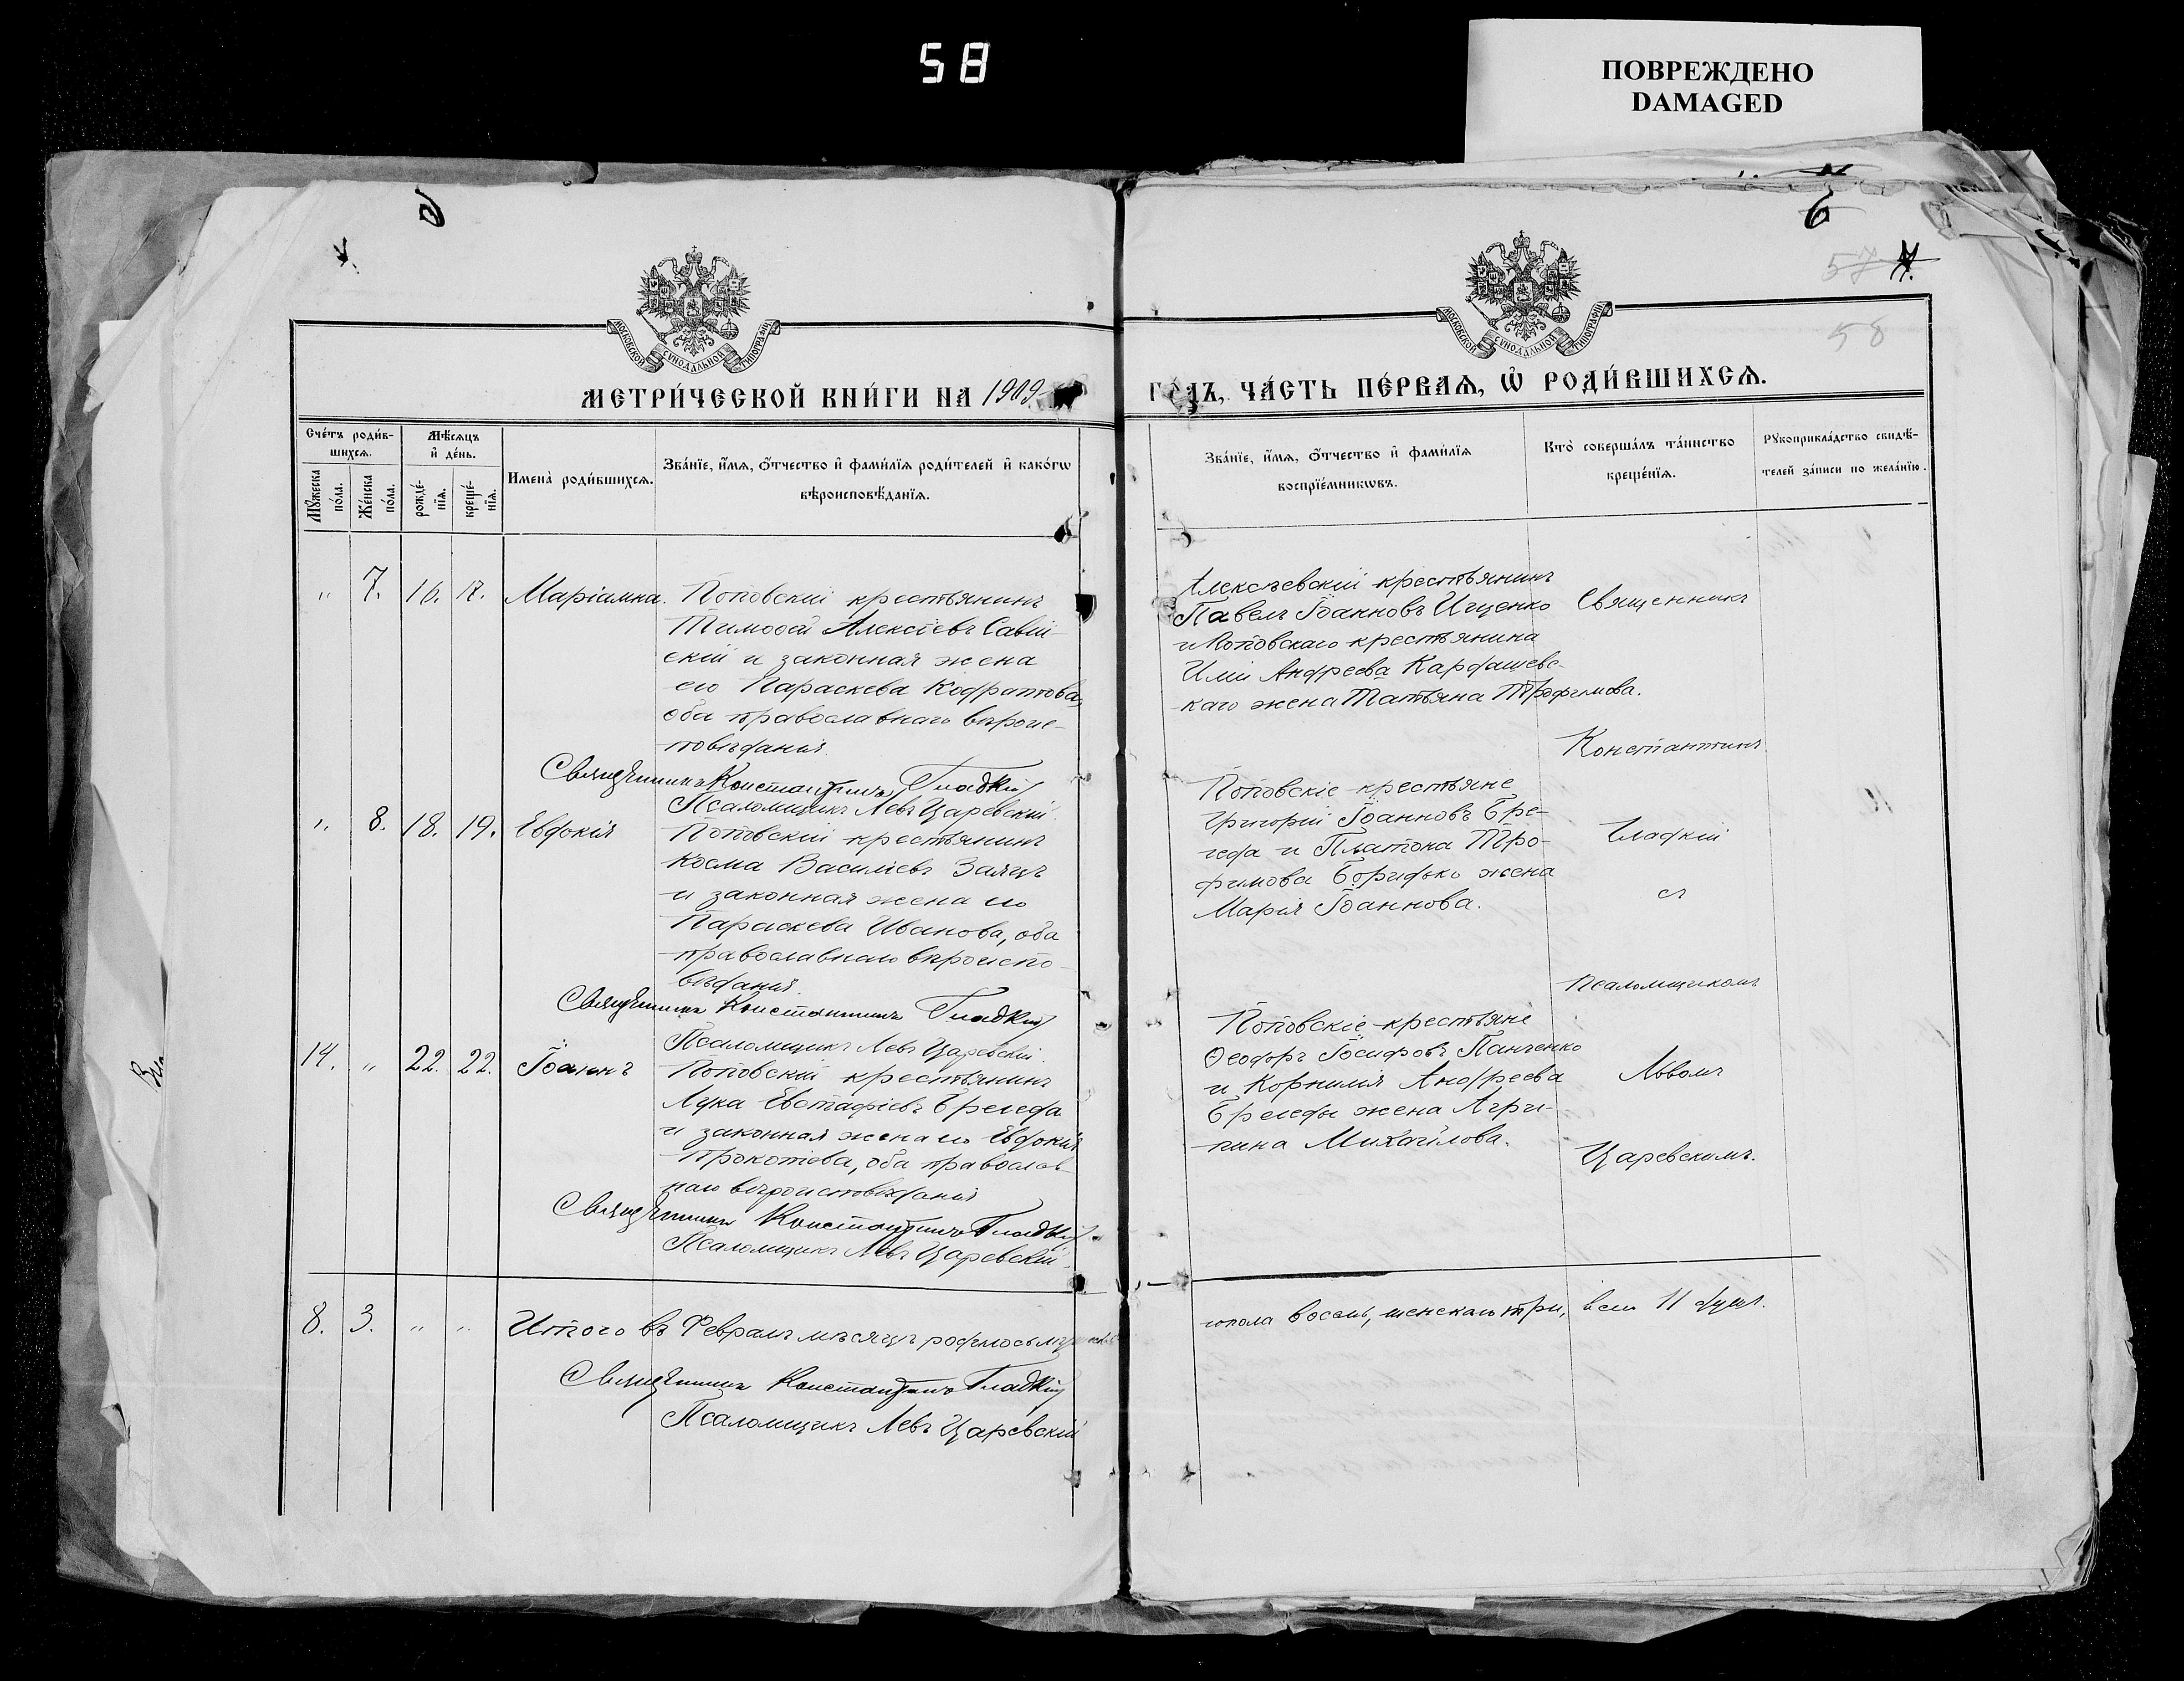 58
ПОВРЕЖДЕНО
DAMAGED
6
57
58
МОСКОВСКОЙ СУНОДАЛЬНОЙ ТИПОГРАФІИ
МОСКОВСКОЙ СУНОДАЛЬНОЙ ТИПОГРАФІИ
МЕТРИ́ЧЕСКОЙ КНИ́ГИ НА 1909
ГОДЪ, ЧА́СТЬ ПЕ́РВАѦ, Ѽ РОДИ́ВШИХСѦ.
Сче́тъ роди́в-
шихсѧ.
Мꙋ́жеска по́ла.
Же́нска по́ла.
Мѣ́сѧцъ и҆ де́нь.
рожде́-
нїѧ.
креще́-
нїѧ.
Имена̀ роди́вшихсѧ.
Зва́нїе, и҆́мѧ, ѻ҆́тчество и҆ фами́лїѧ роди́телей и҆ како́гѡ
вѣроисповѣ́данїѧ.
Зва́нїе, и҆́мѧ, ѻ҆́тчество и҆ фами́лїѧ
воспрїе́мникѡвъ.
Кто̀ соверша́лъ та́инство
креще́нїѧ.
Рꙋкоприкла́дство свидѣ́-
телей за́писи по жела́нїю.
" 7. 16. 17. Маріамна. Поповскій крестьянинъ
Тимоѳей Алексіевъ Савій-
скій и законная жена
его Параскева Кодратова,
оба православнаго вѣроис-
повѣданія.
Священникъ Константинъ Гладкій
Псаломщикъ Левъ Царевскій.
Алексѣевскій крестьянинъ
Павелъ Іоанновъ Ищенко
и Поповскаго крестьянина
Иліи Андреева Кардашевс-
каго жена Татьяна Трофимова.
" 8. 18. 19. Евдокія Поповскій крестьянинъ
Косма Василіевъ Заяцъ
и законная жена его
Параскева Иванова, оба
православнаго вѣроиспо-
вѣданія.
Священникъ Константинъ Гладкій
Псаломщикъ Левъ Царевскій.
Поповскіе крестьяне
Григорій Іоанновъ Бре-
геда и Платона Тро-
фимова Боридько жена
Марія Іоаннова.
14. " 22. 22. Іоаннъ Поповскій крестьянинъ
Лука Евстафіевъ Брегеда
и законная жена его Евдокія
Прокопіева, оба православ-
наго вѣроисповѣданія
Священникъ Константинъ Гладкій
Псаломщикъ Левъ Царевскій
Поповскіе крестьяне
Ѳеодоръ Іосифовъ Панченко
и Корнилія Андреева
Брегеды жена Агри-
пина Михайлова.
Священникъ
Константинъ
Гладкій
съ
псаломщикомъ
Львомъ
Царевскимъ.
8. 3. " " Итого въ Февралѣ мѣсяцѣ родилось мужска-
го пола восемь, женскаго три, всего 11 душъ.
Священникъ Константинъ Гладкій
Псаломщикъ Левъ Царевскій